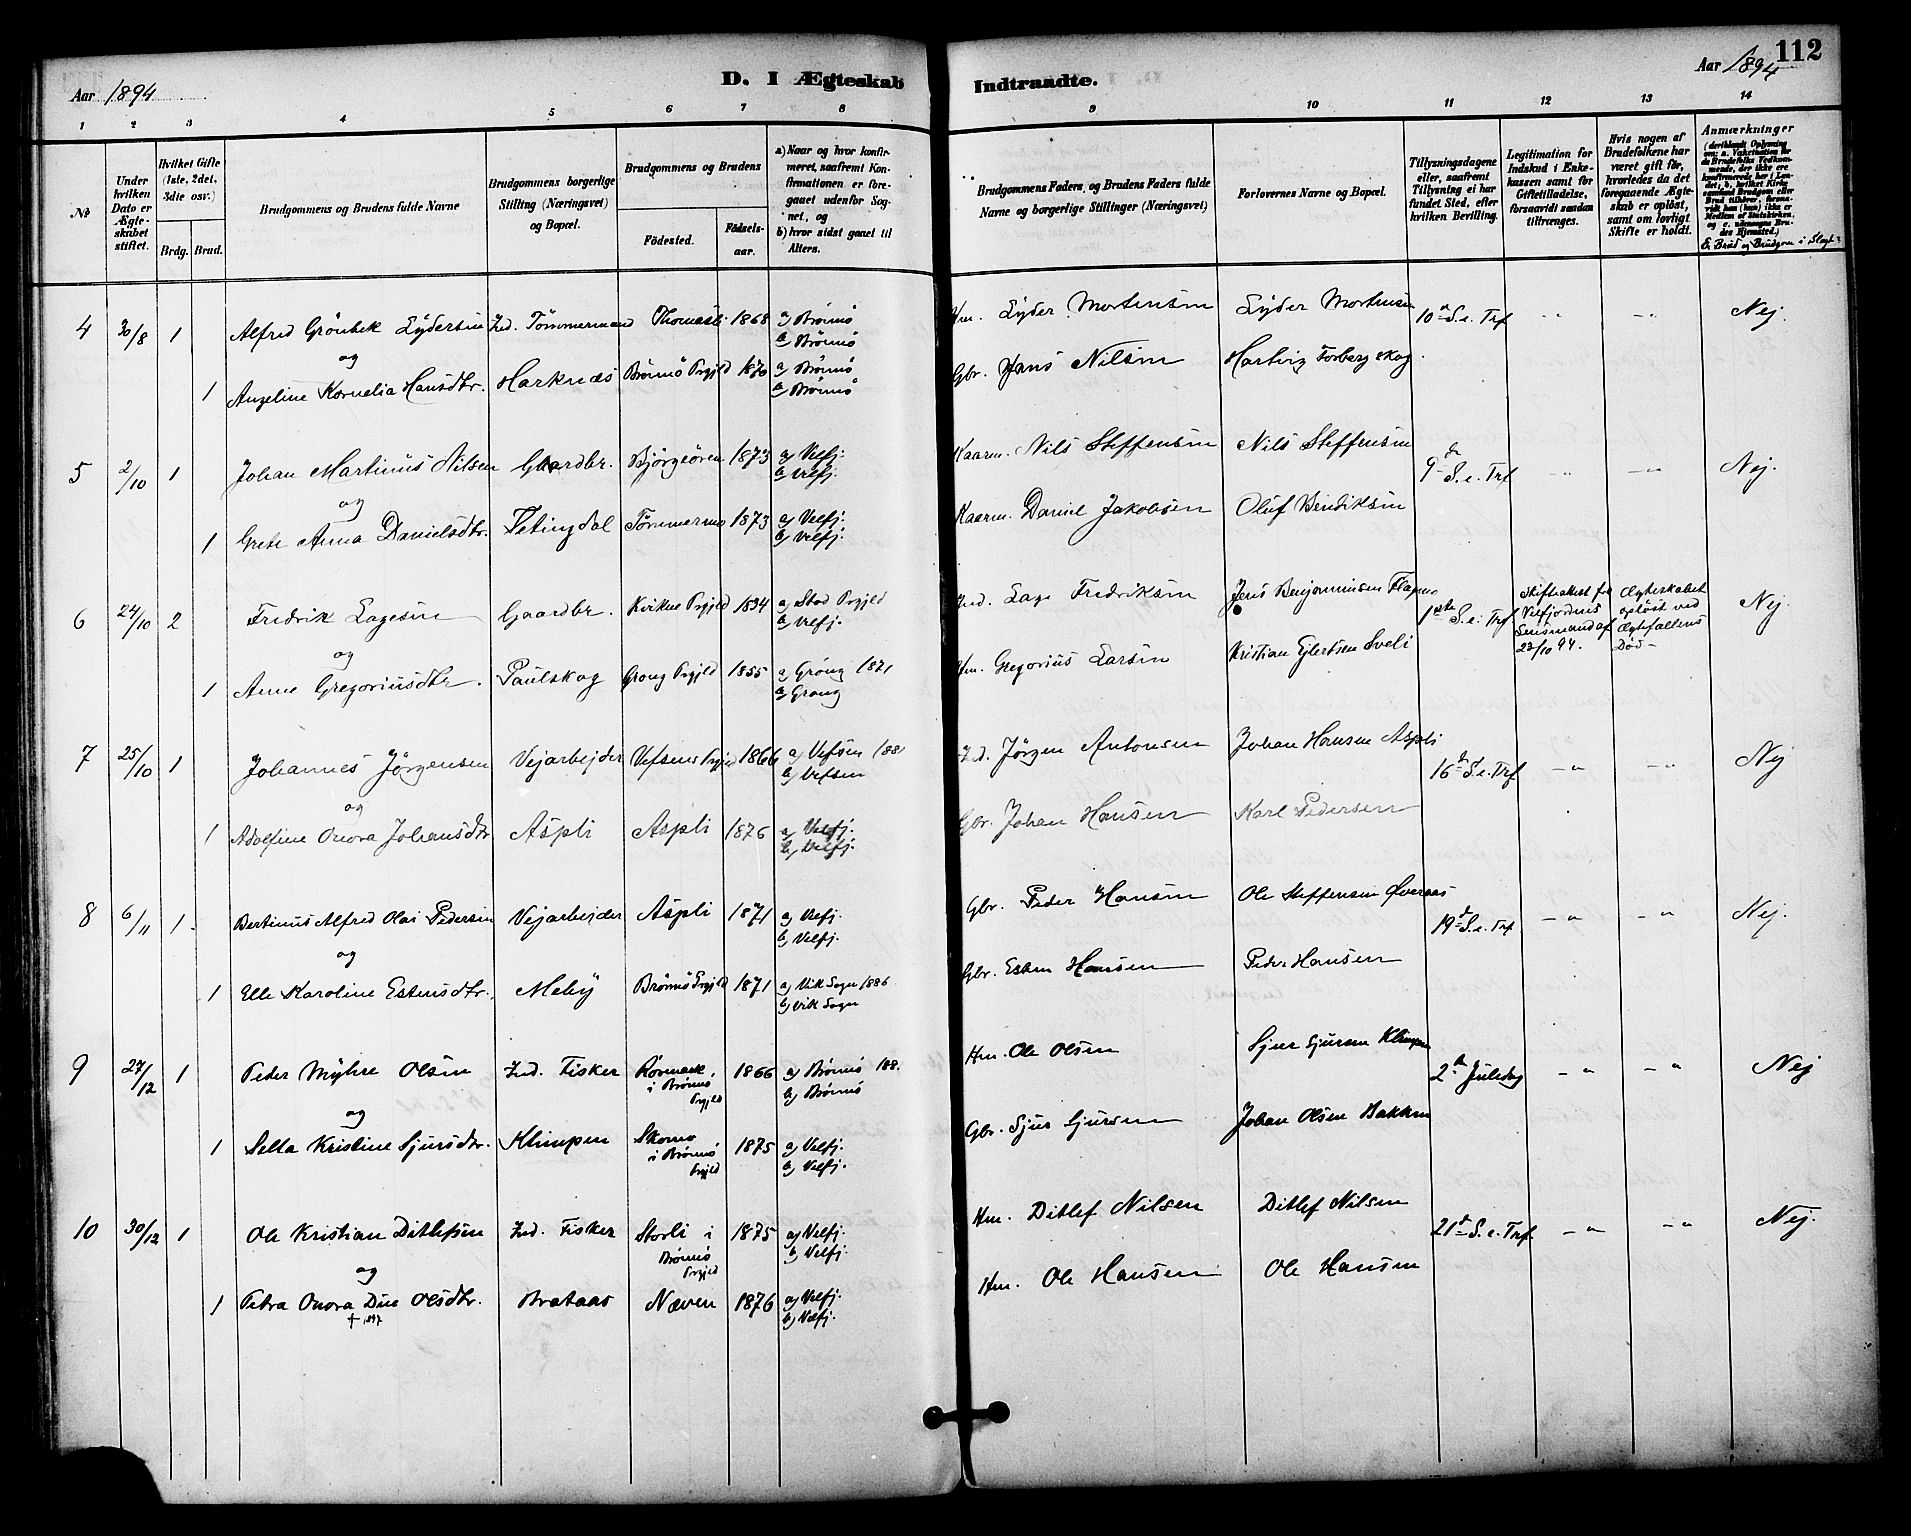 Aar 1894
D. I Ægteskab
Indtraadte.
Aar 1894
112
1 2 3 4 5 6 7 8 9 10 11 12 13 14
№
Under hvilken Dato er Ægteskabet stiftet.
Hvilket Gifte (1ste, 2det, 3dte osv.)
Brdg. Brud.
Brudgommens og Brudens fulde Navne
Brudgommens borgerlige Stilling (Næringsvei) og Bopæl.
Brudgommens og Brudens
Födested.
Födsels-aar.
a) Naar og hvor konfirmeret, saafremt Konfirmationen er foregaaet udenfor Sognet, og
b) hvor sidst gaaet til Alters.
Brudgommens Faders, og Brudens Faders fulde Navne og borgerlige Stillinger (Næringsvei)
Forlovernes Navne og Bopæl.
Tillysningsdagene eller, saafremt Tillysning ei har fundet Sted, efter hvilken Bevilling.
Legitimation for Indskud i Enkekassen samt for Giftetilladelse, forsaavidt saadan tiltrænges.
Hvis nogen af Brudefolkene har været gift för, hvorledes da det foregaaende Ægteskab er oplöst, samt om lovligt Skifte er holdt.
Anmærkninger
& Brud og Brudgom i Slægt?
4 30/8 1 Alfred Grönbek Lydersen Ind. Tömmermand Thomasli 1868 a) Brönnö b) Brönnö Hm. Lyder Mortensen Lyder Mortensen 10de S. e. Trf - " - " Nej.
og
1 Angeline Kornelia Hansdtr. Harknæs Brönnö Prgjld 1870 a) Brönnö b) Brönnö Gbr. Hans Nilsen Hartvig Torberg skog
5 2/10 1 Johan Martinus Nilsen Gaardbr. Björgeören 1873 a) Velfj. b) Velfj. Kaarm. Nils Steffensen Nils Steffensen 9de S. e. Trf - " - " Nej.
og
1 Grete Anna Danielsdtr. Tetingdal Tömmermo 1873 a) Velfj. b) Velfj. Kaarm. Daniel Jakobsen Oluf Bendiksen
6 24/10 2 Fredrik Lagesen Gaardbr. Kvikne Prgjld 1834 a) Stod Prgjeld b) Velfj. Ind. Lage Fredriksen Jens Benjaminsen 1ste S. e. Trf Skifteattest fra Velfjordens Lensmand af 22/10 94. Ægteskabet opløst ved Ægtefællens Död - Nej.
og
1 Anne Gregoriusdtr. Paulskog Grong Prgjld 1855 a) Grong 1871 b) Grong Hm. Gregorius Larsen Kristian Ejlertsen Sveli
7 25/10 1 Johannes Jörgensen Vejarbejder Vefsens Prgjeld 1866 a) Vefsen 188 b) Vefsen Ind. Jörgen Antonsen Johan Hansen Aspli 16de S. e. Trf. - " - " Nej
og
1 Adolfine Onora Johansdtr Aspli Aspli 1876 a) Velfj. b) Velfj. Gbr. Johan Hansen Karl Pedersen
8 6/11 1. Bertinus Alfred Olai Pedersen Vejarbejder Aspli 1871 a) Velfj. b) Velfj. Gbr. Peder Hansen Ole Steffensen Øveraas 19de S. e. Trf - " - " Nej.
og
1 Elle Karoline Estensdtr. Meby Brönnö Prgjld 1871 a) Vik Sogn 1886 b) Vik Sogn Gbr. Esten Hansen Peder Hansen
9 27/12 1 Peder Myhre Olsen Ind. Fisker Rörmark i Brönnö Prgjeld 1866 a) Brönnö 188. b) Brönnö Hm. Ole Olsen Sjur Sjursen Klimpen 2den Juledag - " - " Nej
og
1 Selta Kristine Sjursdtr. Klimpen Skomo i Brönnö Prgjeld 1875 a) Velfj. b) Velfj. Gbr. Sjur Sjursen Johan Olsen Bakken
10 30/12 1 Ole Kristian Ditlefsen Ind. Fisker Storli i Brönnö Prgjeld 1875 a) Velfj. b) Velfj. Hm. Ditlef Nilsen Ditlef Nilsen 21de S. e. Trf. - " - " Nej.
og
1 Petra Onora Due Olsdtr. Brataas Næven 1876 a) Velfj. b) Velfj. Hm. Ole Hansen Ole Hansen
+ 1897